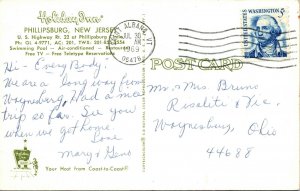 Holiday Inn
PHILLIPSBURG, NEW JERSEY
U. S. Highway Rt. 22 at Phillipsburg
Ph: GL 4-9771, AC: 201, TWX:
Swimming Pool — Air-conditioned — Restaurant
Free TV — Free Teletype Reservations
Hi - Every Body!
We are a long way from
Waynesburg. Had a nice
trip so far. See you
when we get home.
Love
Mary & Geno
Your Host from Coast-to-Coast
ST. ALBANS, VT
JUL 30
AM
1969
05478
WASHINGTON
5¢
UNITED STATES
POST CARD
Mr. & Mrs. Bruno
Waynesburg, Ohio
44688